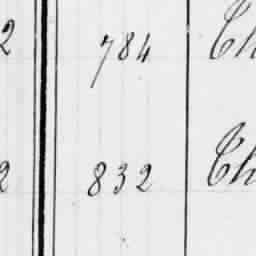 2 784 Th
2 832 Th